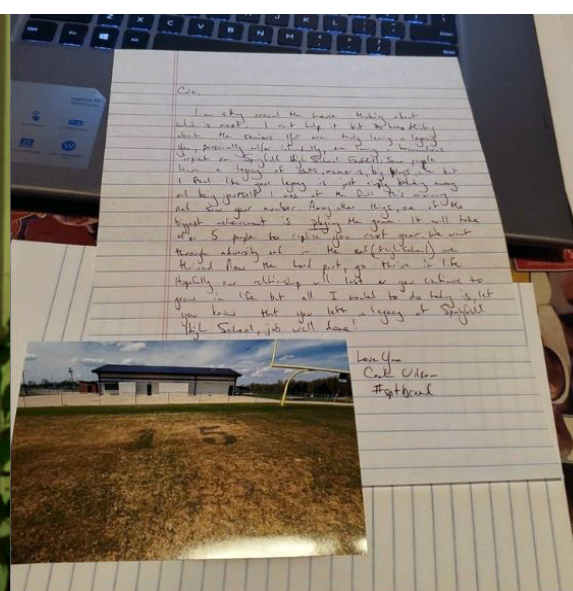 Cole,
I am sitting around the house thinking about
what is next. I can't help it but to
about the seniors that are truly leaving a legacy
You, personally and/or athletically, are leaving a
impact on Springfield High School Football. Some people
leave a legacy of stats, memories, big plays, etc but
I feel like your legacy is just simply
and being yourself. I was at the field this morning
and saw your number. Among other things, one of the
biggest achievement is playing the game. It will take
4 or 5 people to replace you next year. We went
through adversity and in the end (High School) we
thrived. Now the hard part, go thrive in life.
Hopefully our relationship will last as you continue to
grow in life but all I wanted to do today is, let
you know that you left a legacy at Springfield
High School, job well done!
Love You
Coach Wilson
75